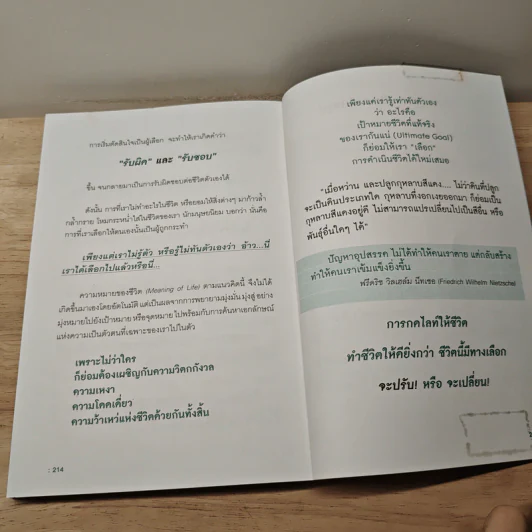 การเริ่มตัดสินใจเป็นผู้เลือก จะทำให้เราเกิดคำว่า
"รับผิด" และ "รับชอบ"
ขึ้น จนกลายมาเป็นการรับผิดชอบต่อชีวิตตัวเองได้
ดังนั้น การที่เราไม่ทำอะไรในชีวิต หรือยอมให้สิ่งต่างๆ มาก้าวล้ำ
กล้ำกราย โหมกระหน่ำใส่ในชีวิตของเรา นักมนุษยนิยม บอกว่า นั่นคือ
การที่เราเลือกให้ตนเองนั้นเป็นผู้ถูกกระทำ
เพียงแค่เราไม่รู้ตัว หรือรู้ไม่ทันตัวเองว่า อ้าว...นี่
เราได้เลือกไปแล้วหรือนี่...
ความหมายของชีวิต (Meaning of Life) ตามแนวคิดนี้ จึงไม่ได้
เกิดขึ้นมาเองโดยอัตโนมัติ แต่เป็นผลจากการพยายามมุ่งมั่น มุ่งสู่ อย่าง
มุ่งหมายไปยังเป้าหมาย หรือจุดหมาย ไปพร้อมกับการค้นหาเอกลักษณ์
แห่งความเป็นตัวตนที่เฉพาะของเราไปในตัว
เพราะไม่ว่าใคร
ก็ย่อมต้องเผชิญกับความวิตกกังวล
ความเหงา
ความโดดเดี่ยว
ความว้าเหว่แห่งชีวิตด้วยกันทั้งสิ้น
: 214
เพียงแค่เรารู้เท่าทันตัวเอง
ว่า อะไรคือ
เป้าหมายชีวิตที่แท้จริง
ของเรากันแน่ (Ultimate Goal)
ก็ย่อมให้เรา "เลือก"
การดำเนินชีวิตได้ใหม่เสมอ
"เมื่อหว่าน และปลูกกุหลาบสีแดง.... ไม่ว่าดินที่ปลูก
จะเป็นดินประเภทใด กุหลาบที่งอกเงยออกมา ก็ย่อมเป็น
กุหลาบสีแดงอยู่ดี ไม่สามารถแปรเปลี่ยนไปเป็นสีอื่น หรือ
พันธุ์อื่นใดๆ ได้"
ปัญหาอุปสรรค ไม่ได้ทำให้คนเราตาย แต่กลับสร้าง
ทำให้คนเราเข้มแข็งยิ่งขึ้น
ฟรีดริช วิลเฮล์ม นีทเชอ (Friedrich Wilhelm Nietzsche)
การกดไลท์ให้ชีวิต
ทำชีวิตให้ดียิ่งกว่า ชีวิตนี้มีทางเลือก
จะปรับ! หรือ จะเปลี่ยน!